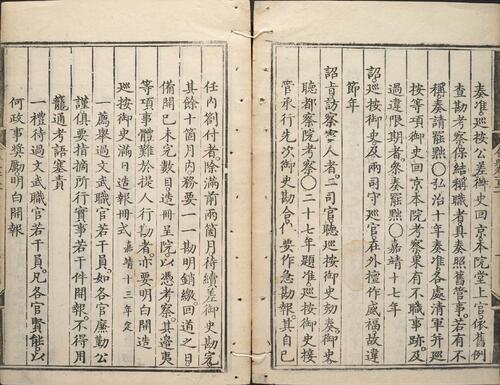 奏准。巡按公差御史回京。本院堂上官。依舊例
查勘考察。保結稱職者。具奏照舊管事。若有不
稱。奏請罷黜○弘治十年奏准。各處清軍并巡
按等項御史。回京。本院考察。果有不職事跡。及
過違限期者。叅奏罷黜○嘉靖十七年
詔。巡按御史。及兩司守巡官。在外擅作威福。故違
節年
詔旨。訪察害人者。二司官。聽巡按御史劾奏。御史
聽都察院考察○二十七年題准。巡按御史接
管承行。先次御史勘合。要作急勘報。其自己
任內劄付者。除滿前兩箇月。待續差御史勘完。
其餘十箇月內。務要一一勘明銷繳。回道之日。
備開已未完數目。造冊呈院。以憑考察。其邊夷
等項事體。難於提人行勘者。亦要明白開造
巡按御史滿日造報冊式 嘉靖十三年定
一薦舉過文武職官若干員。如各官廉勤公
謹。俱要指摘所行實事若干件開報。不得用
籠通考語塞責
一禮待過文武職官若干員。凡各官賢能。以
何政事奬勵。明白開報